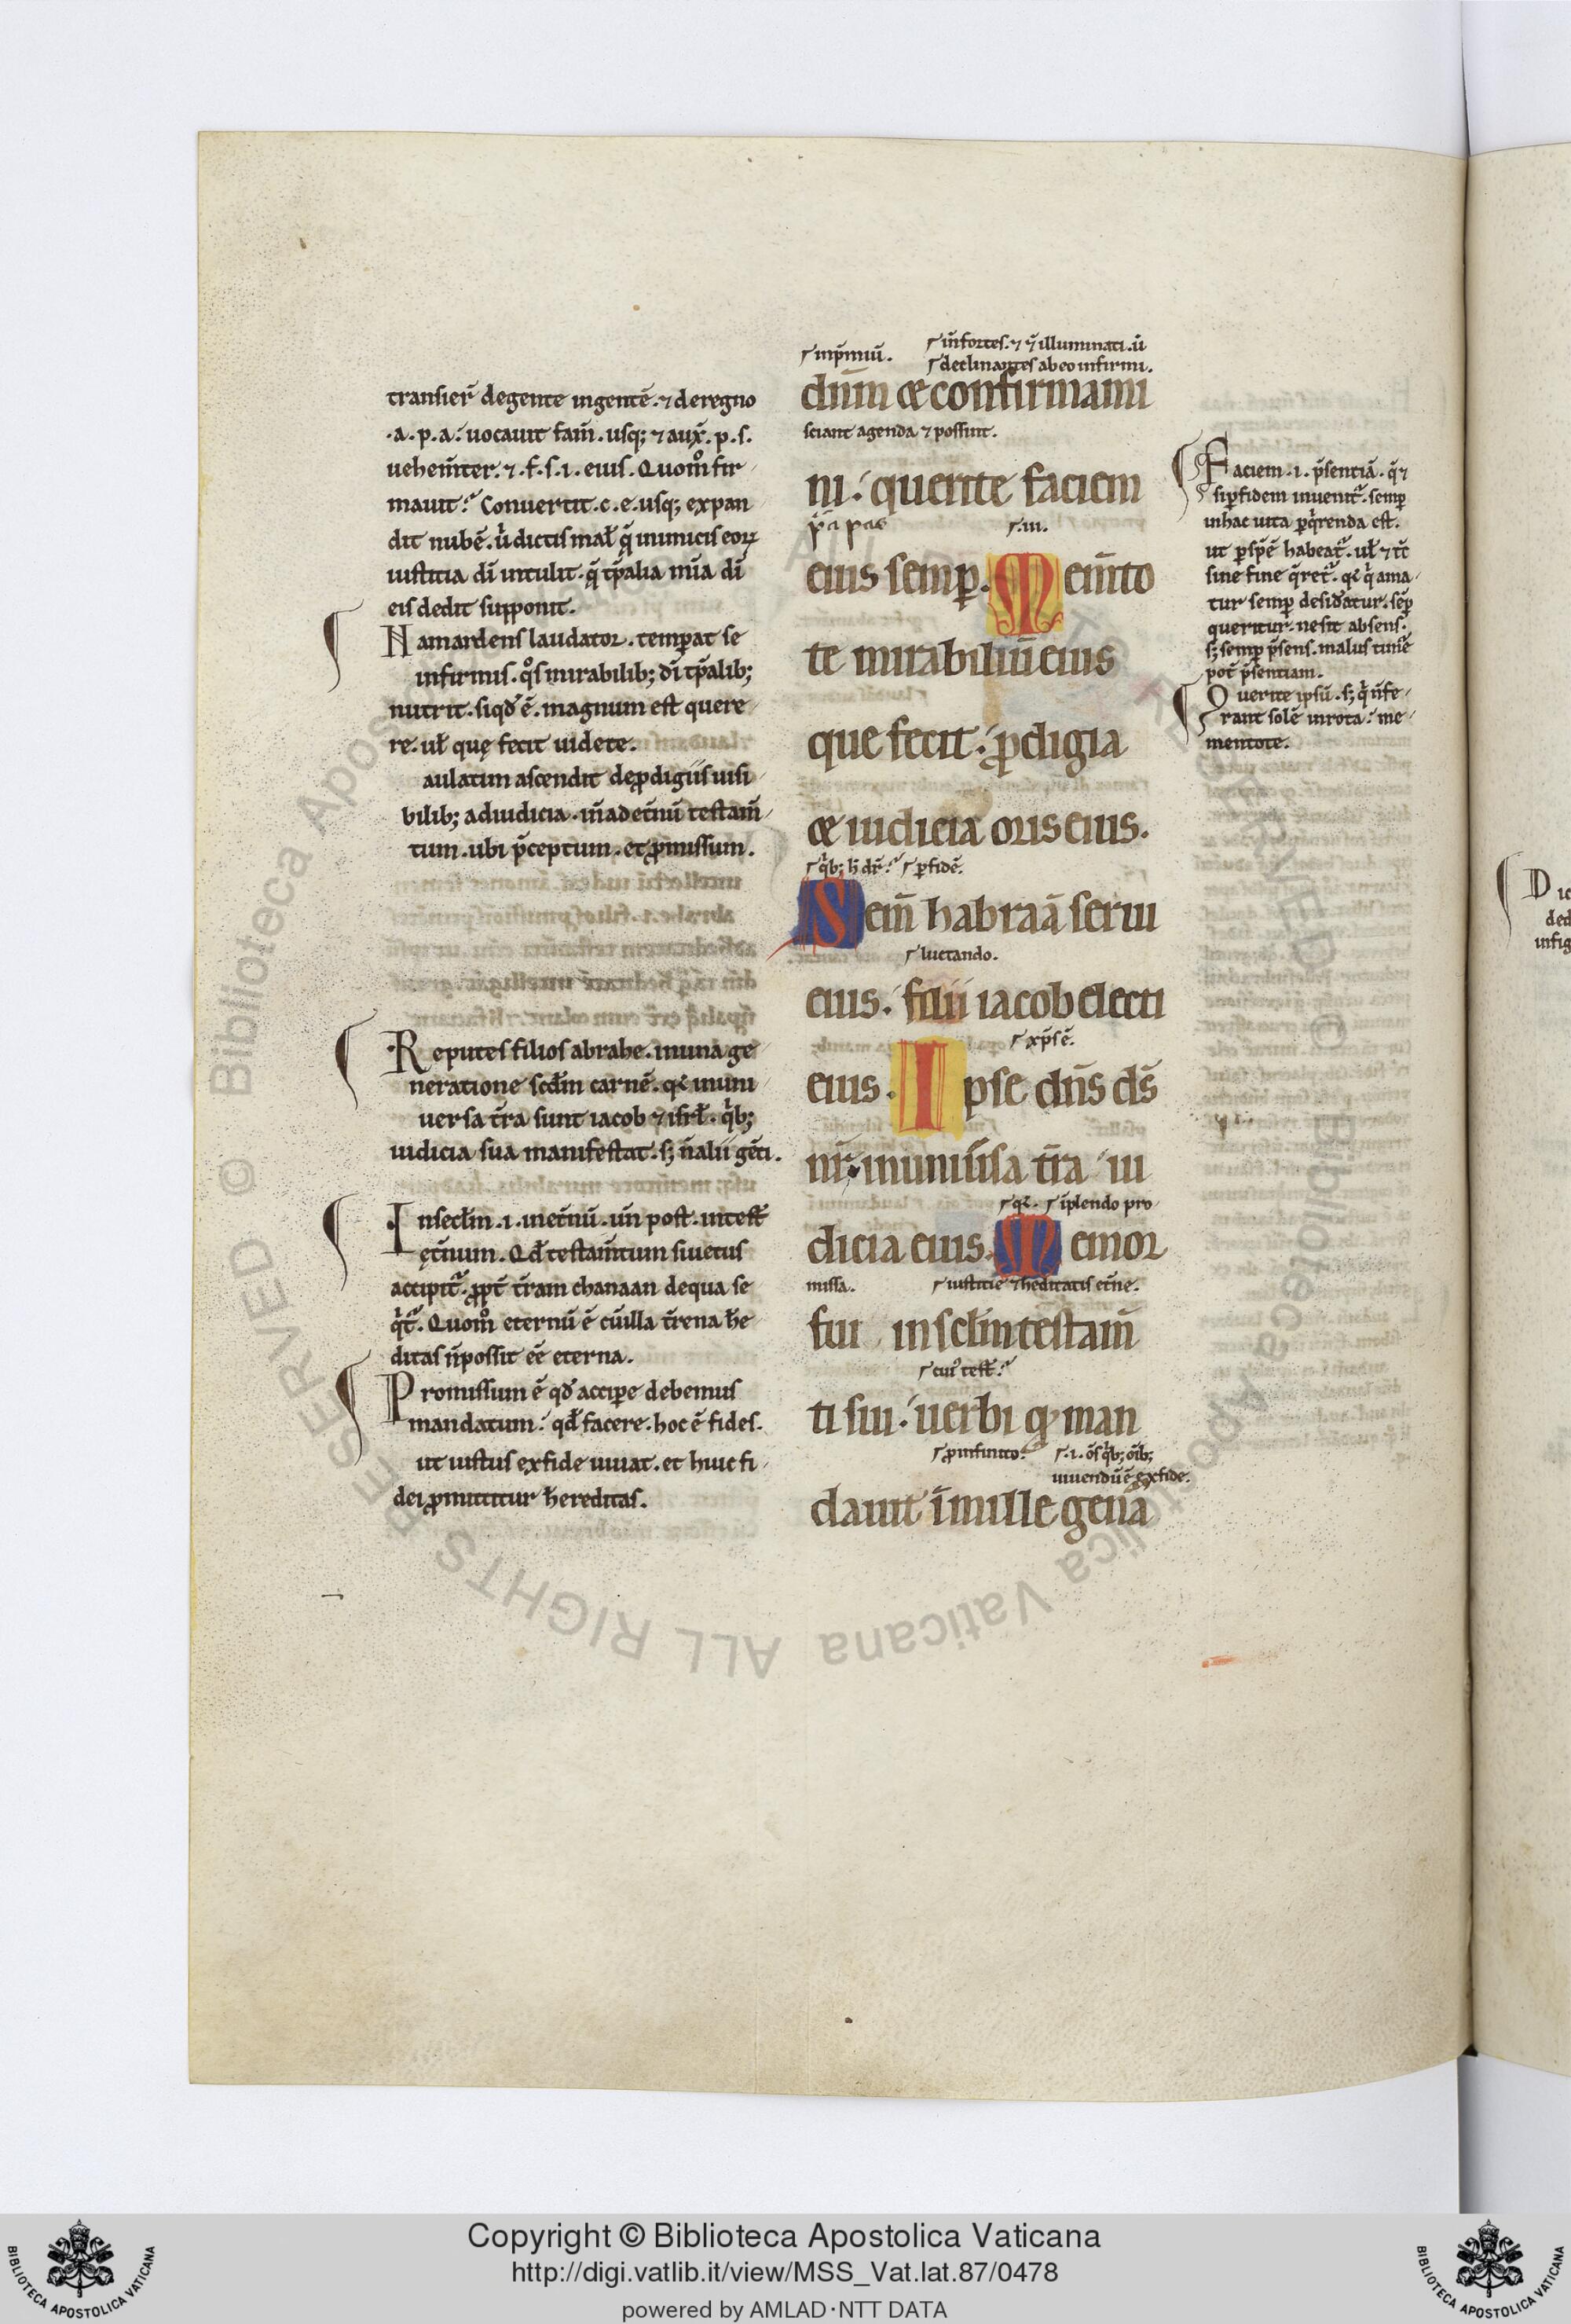 transier̄ de gente in gentē. ⁊ de regno
.a. p. a. uocauit fam̄. usq; ⁊ aux̄. p. s.
uehem̄ter. ⁊ .f. s. i. eius. Quom̊ fir
mauit? Conuertit. c. e. usq; expan
dit nubē. u̍ dictis mal̄ q̄ inimicis eoꝝ
iustitia dī intulit. q̄ tp̄alia mīa dī
eis dedit supponit.
Nam ardens laudator. temꝑat se
infirmis. q̊s mirabilib; dī tp̄alib;
nutrit. si qd̄ ē. magnum est quere
re. ul̄ quę fecit uidete.
aulatim ascendit de ꝓdigiis uisi
bilib; ad iudicia. īn ad et̄nū testam̄
tum. ubi p̄ceptum. et ꝓmissum.
Reputes filios abrahe. in una ge
neratione scdm̄ carnē. qꝛ in uni
uersa t̄ra sunt iacob ⁊ isrl̄. q̍b;
iudicia sua manifestat. s; n̄ alii gēti.
In secl̄m .i. in et̄nū. un̄ post. in test̄
ęt̄num. Qd̄ testam̄tum si uetus
accipit᷑. ꝓpt̄ t̄ram chanaan de qua se
q̍t᷑. Quom̊ eternū ē cū illa t̄rena he
ditas n̄ possit eē eterna.
Promissum ē qd̄ acciꝑe debemus
mandatum? qd̄ facere. hoc ē fides.
ut iustus ex fide uiuat. et huic fi
dei ꝓmittitur h̄ereditas.
in p̄miū.
in̄ fortes. ⁊ n̄ illuminati. ū
declinantes ab eo infirmi.
dn̄m & confirmami
sciant agenda ⁊ possint.
ni. querite faciem
eius semꝑ. Mem̄to
te mirabiliū eius
que fecit. ꝓdigia
& iudicia oris eius.
q̍b; h̄ dr̄? ꝑ fidē.
Sem̄ habraā serui
luctando.
eius. filii iacob electi
xp̄s ē.
eius. Ipse dn̄s ds̄
nr̄. in uniūsa t̄ra iu
qꝛ. īplendo pro
dicia eius. Memor
missa. iustitie ⁊ heditatis et̄ne.
fui in secl̄m testam̄
cui᷒ test̄?
ti sui. uerbi qᷓ man
ꝓ infinito. .i. ōs q̍b; ōib;
uiuendū ē ex fide.
dauit ī mille gen̄a
Faciem .i. p̄sentiā. q̄ ⁊
si ꝑ fidem inuenit᷑. semꝑ
in hac uita ꝑq̍renda est.
ut ꝑ spē habeat᷑. ul̄ ⁊ tc̄
sine fine q̄ret᷑. qꝛ q̍ ama
tur semꝑ desid̄atur. sēꝑ
queritur. ne sit absens.
s; semꝑ p̄sens. malus timē
pot̄ p̄sentiam.
Querite ipsū. s; q̍ n̄ fe
rant solē in rota? me
mentote.
Copyright © Biblioteca Apostolica Vaticana
http://digi.vatlib.it/view/MSS_Vat.lat.87/0478
powered by AMLAD·NTT DATA